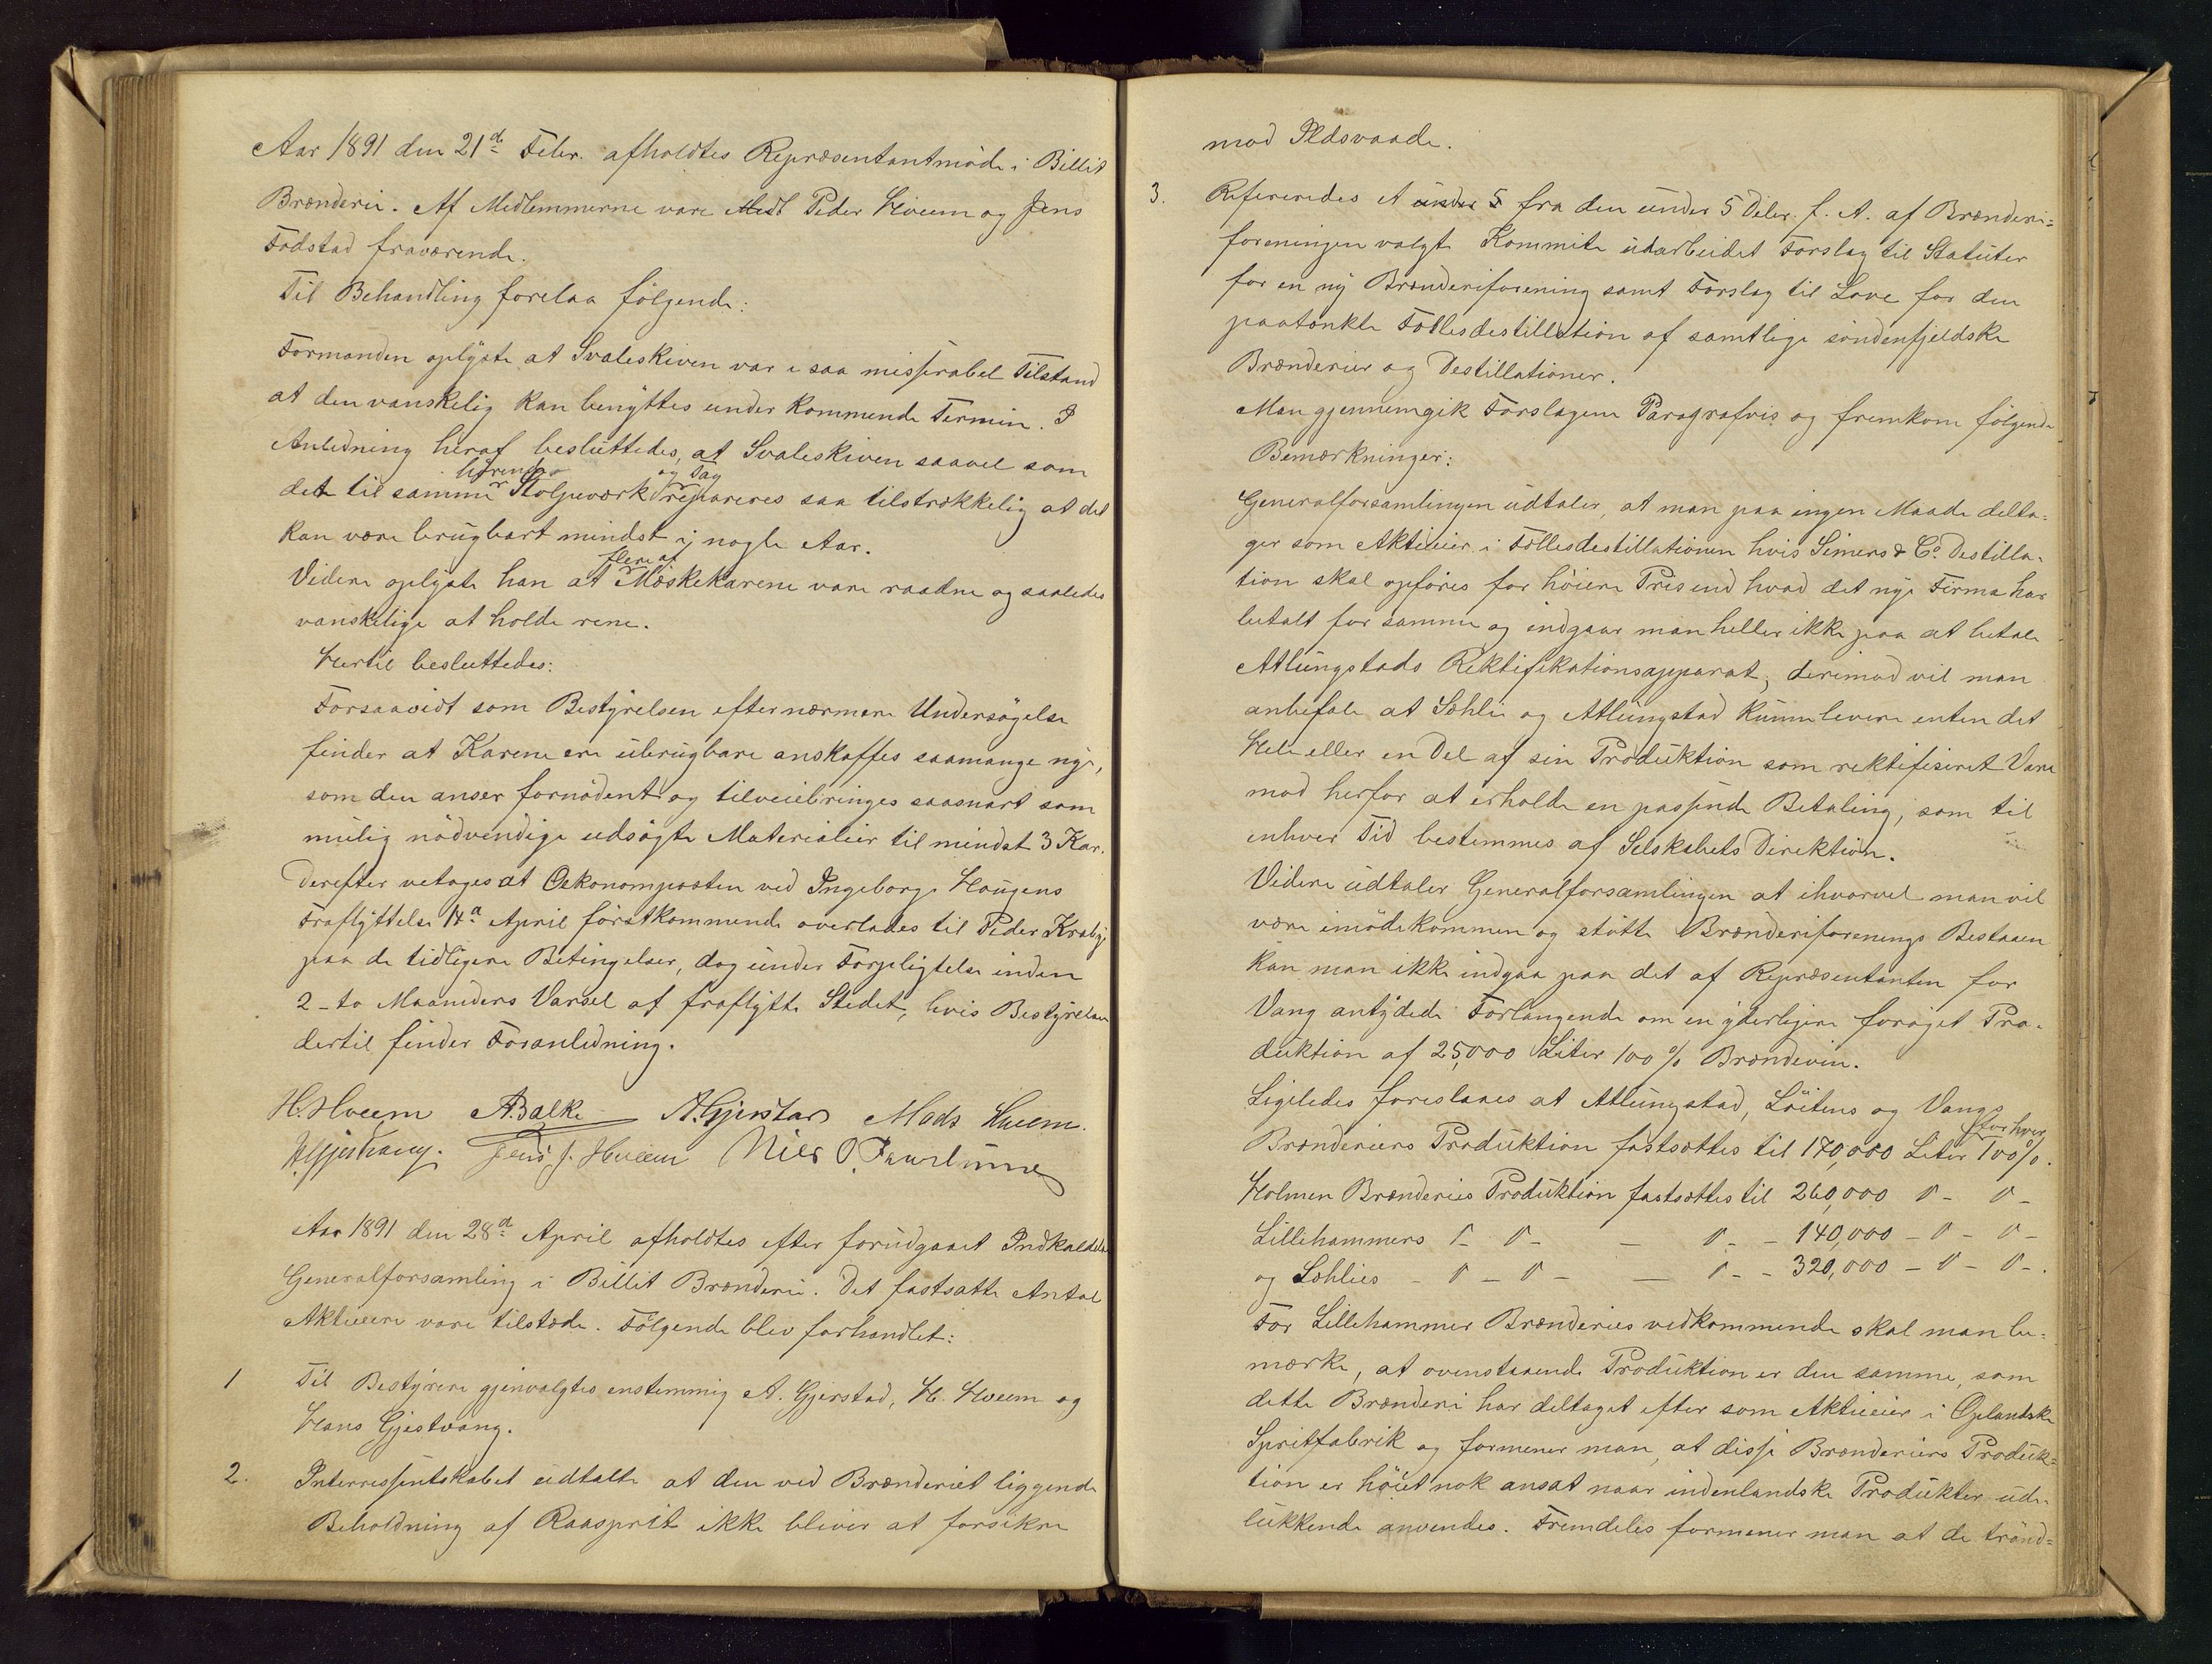 Aar 1891 den 21de Febr. afholdtes Repræsentantmøde i Billit
Brænderi. Af Medlemmerne vare Peder Hveem og Jens
Fodstad fraværende.
Til Behandling forelaa følgende:
Formanden oplyste at Svaleskiven var i saa misserabel Tilstand
at den vanskelig kan benyttes under kommende Termin. I
Anledning heraf besluttedes, at Svaleskiven saavel som
det til samme hørende Stolpeværk og Tag repareres saa tilstrækkelig at det
kan være brugbart mindst i nogle Aar.
Videre oplyste han at flere af Mæskekarene vare raadne og saaledes
vanskelige at holde rene.
Hertil besluttedes:
Forsaavidt som Bestyrelsen efter nærmere Undersøgelse
finder at Karene ere ubrugbare anskaffes saamange nye,
som den anser fornødent og tilveiebringes saasnart som
mulig nødvendige udsøgte Materialier til mindst 3 Kar.
Derefter vetoges at Oekonomposten ved Ingeborg Haugens
Fraflyttelse 14de April førstkommende overlades til Peder Kraby
paa de tidligere Betingelser, dog under Forpligtelse inden
2-to Maaneders Varsel at fraflytte Stedet, hvis Bestyrelsen
dertil finder Foranledning.
H. Hveem A. Balke A. Gjerstad Mads Hveem.
H Gjestvang. Jens J. Hveem Niels O.
Aar 1891 den 28de April afholdtes efter forudgaaet Indkaldelse
Generalforsamling i Billit Brænderi. Det fastsatte Antal
Aktieeiere vare tilstede. Følgende blev forhandlet:
1 Til Bestyrere gjenvalgtes enstemmig A. Gjerstad, H. Hveem og
Hans Gjestvang.
2. Interressentskabet udtalte at den ved Brænderiet liggende
Beholdning af Raasprit ikke bliver at forsikre
mod Ildsvaade.
3. Refereredes et under 5 fra den under 5 Debr. f. A. af Brænderi=
foreningen valgte Kommite udarbeidet Forslag til Statuter
for en ny Brænderiforening samt Forslag til Love for den
paatænkte Fællesdestillation af samtlige søndenfjeldske
Brænderier og Destillationer.
Man gjennemgik Forslagene Paragrafvis og fremkom følgende
Bemærkninger:
Generalforsamlingen udtaler, at man paa ingen Maade delta=
ger som Aktieeier i Fællesdestillationen hvis Simers & Co. Destilla=
tion skal opføres for høiere Pris end hvad det nye Firma har
betalt for samme og indgaar man heller ikke paa at betale
Atlungstads Rektifikationsapparat, derimod vil man
anbefale at Løhlie og Atlungstad kunne levere enten det
Hele eller en Del af sin Produktion som rektifiseret Vare
mod herfor at erholde en passende Betaling, som til
enhver Tid bestemmes af Selskabets Direktion.
Videre udtaler Generalforsamlingen at ihvorvel man vil
være imødekommen og støtte Brænderiforenings Bestaaen
kan man ikke indgaa paa det af Repræsentanten for
Vang antydede Forlangende om en yderligere forøget Pro=
duktion af 25,000 Liter 100 % Brændevin.
Ligeledes foreslaaes at Atlungstad, Løitens og Vangs
Brænderiers Produktion fastsættes til 170,000 Liter 100% for hver.
Holmen Brænderies Produktion fastsættes til 260,000 " - " -
Lillehammers " - " - — " - - 140,000 - " - " -
og Løhlies - " - " - — " - - 320,000 - " - " -.
For Lillehammer Brænderies vedkommende skal man be=
mærke, at ovenstaaende Produktion er den samme, som
dette Brænderi har deltaget efter som Aktieeier i Oplandske
Spritfabrik og formener man, at disse Brænderiers Produk=
tion er høiet nok ansat naar indenlandske Produkter ude=
lukkende anvendes. Fremdeles formener man at de trønd=